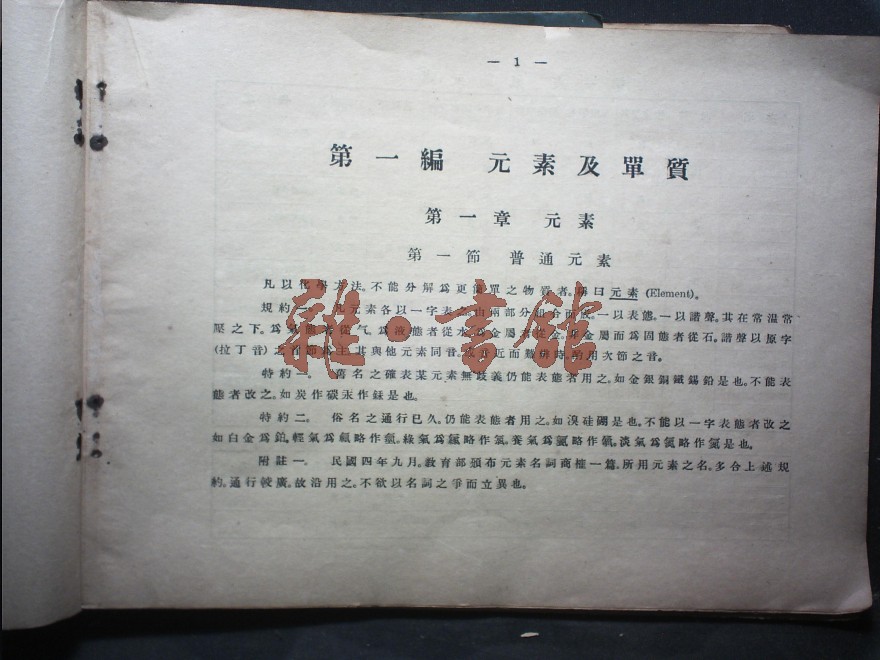 — 1 —
第一編 元素及單質
第一章 元素
第一節 普通元素
凡以化學方法。不能分解爲更簡單之物質者。稱曰元素 (Element)。
規約一。凡元素各以一字表之。由兩部分如合而成。一以表態。一以諧聲。其在常溫常
壓之下。爲氣態者從气。爲液態者從水。爲金屬者從金。非金屬而爲固態者從石。諧聲以原字
(拉丁音)之首節爲主。其與他元素同音。或音近而難辨時。始用次節之音。
特約一。 舊名之確表某元素無歧義仍能表態者用之。如金銀銅鐵錫鉛是也。不能表
態者改之。如炭作碳汞作銾是也。
特約二。 俗名之通行已久。仍能表態者用之。如溴硅硼是也。不能以一字表態者改之
如白金爲鉑。輕氣爲 略作氫。綠氣爲 略作氯。養氣爲 略作氧。淡氣爲 略作氮是也。
附註一。 民國四年九月。教育部頒布元素名詞商榷一篇。所用元素之名。多合上述規
約。通行較廣。故沿用之。不欲以名詞之爭而立異也。
雜·書館